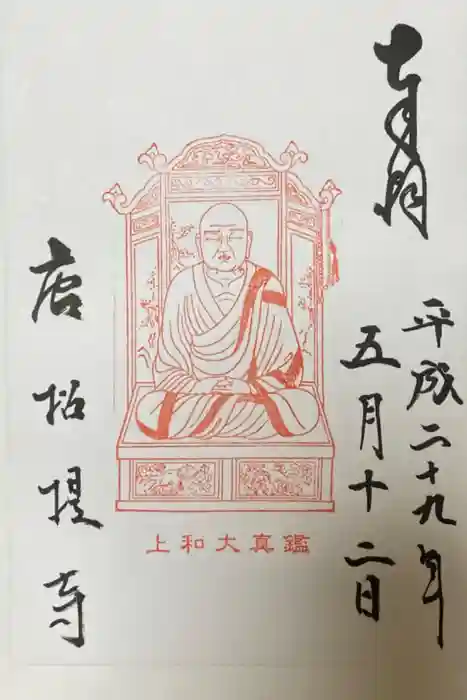 奉拝
平成二十九年
五月十二日
上和大真鑑
唐招提寺